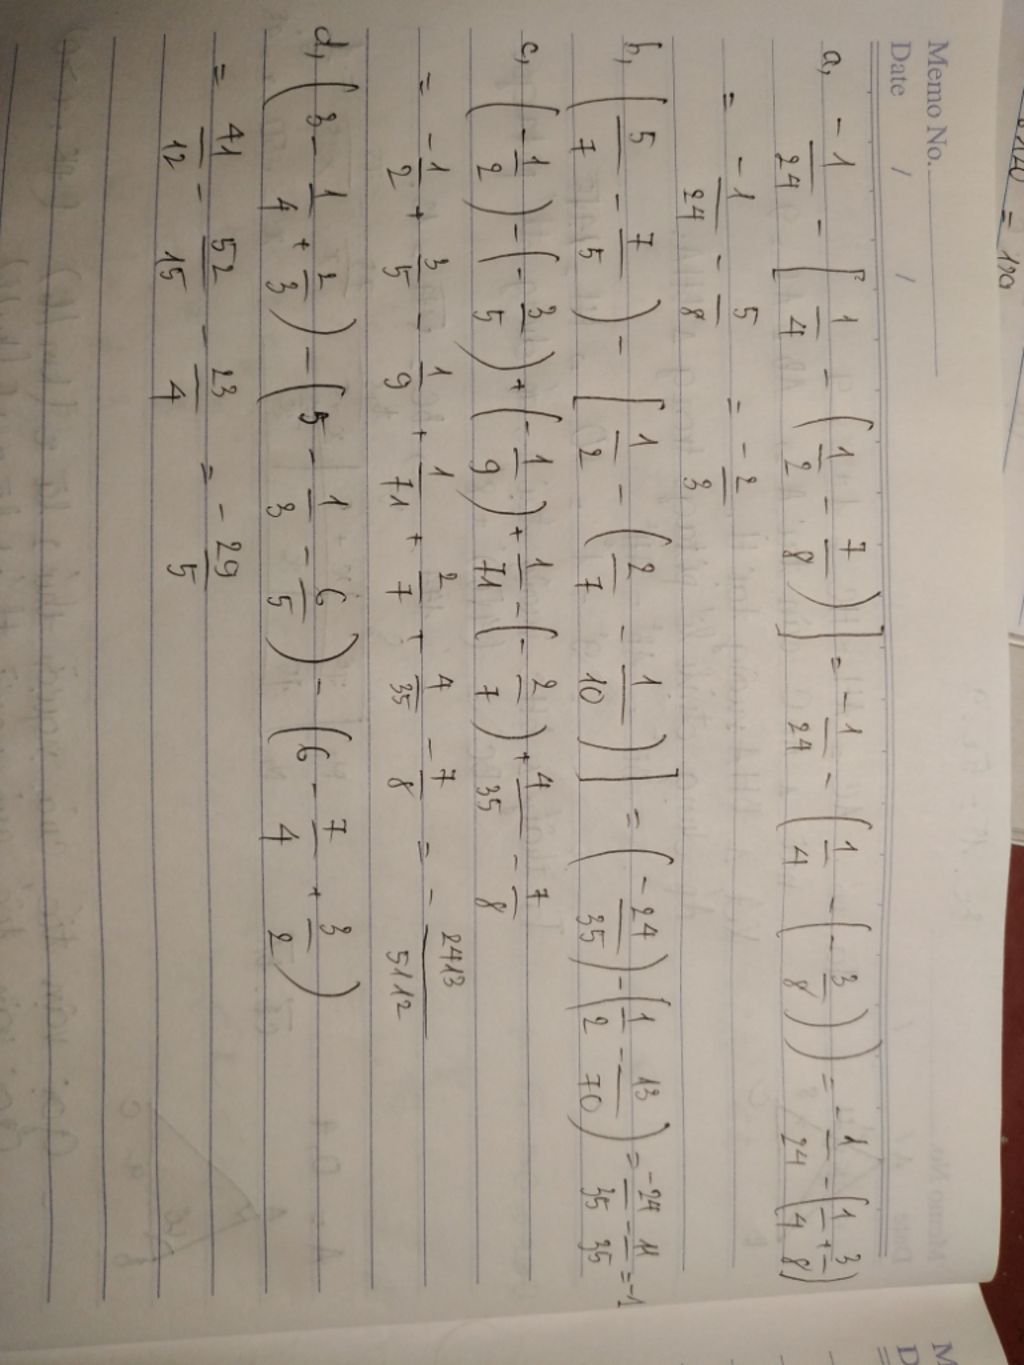 Memo No.
Date / /
a, -1/24 - [1/4 - (1/2 - 7/8)] = -1/24 - (1/4 - (-3/8)) = -1/24 - (1/4 + 3/8)
= -1/24 - 5/8 = -2/3
b, (5/7 - 7/5) - [1/2 - (2/7 - 1/10)] = (-24/35) - (1/2 - 13/70) = -24/35 - 11/35 = -1
c, (-1/2) - (-3/5) + (-1/9) + 1/71 - (-2/7) + 4/35 - 7/8
= -1/2 + 3/5 - 1/9 + 1/71 + 2/7 + 4/35 - 7/8 = - 2413/5112
d, (3 - 1/4 + 2/3) - (5 - 1/3 - 6/5) - (6 - 7/4 + 3/2)
= 41/12 - 52/15 - 23/4 = -29/5